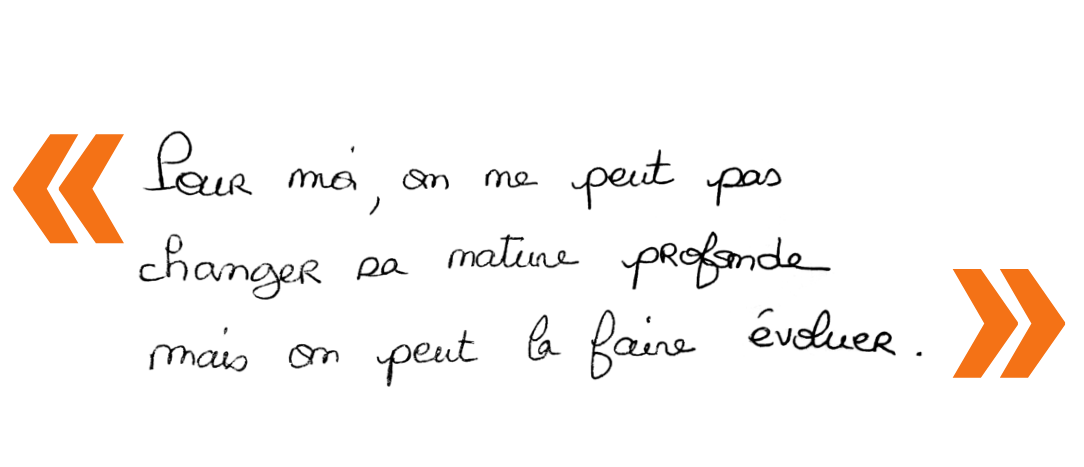 « Pour moi, on ne peut pas
changer sa nature profonde
mais on peut la faire évoluer. »